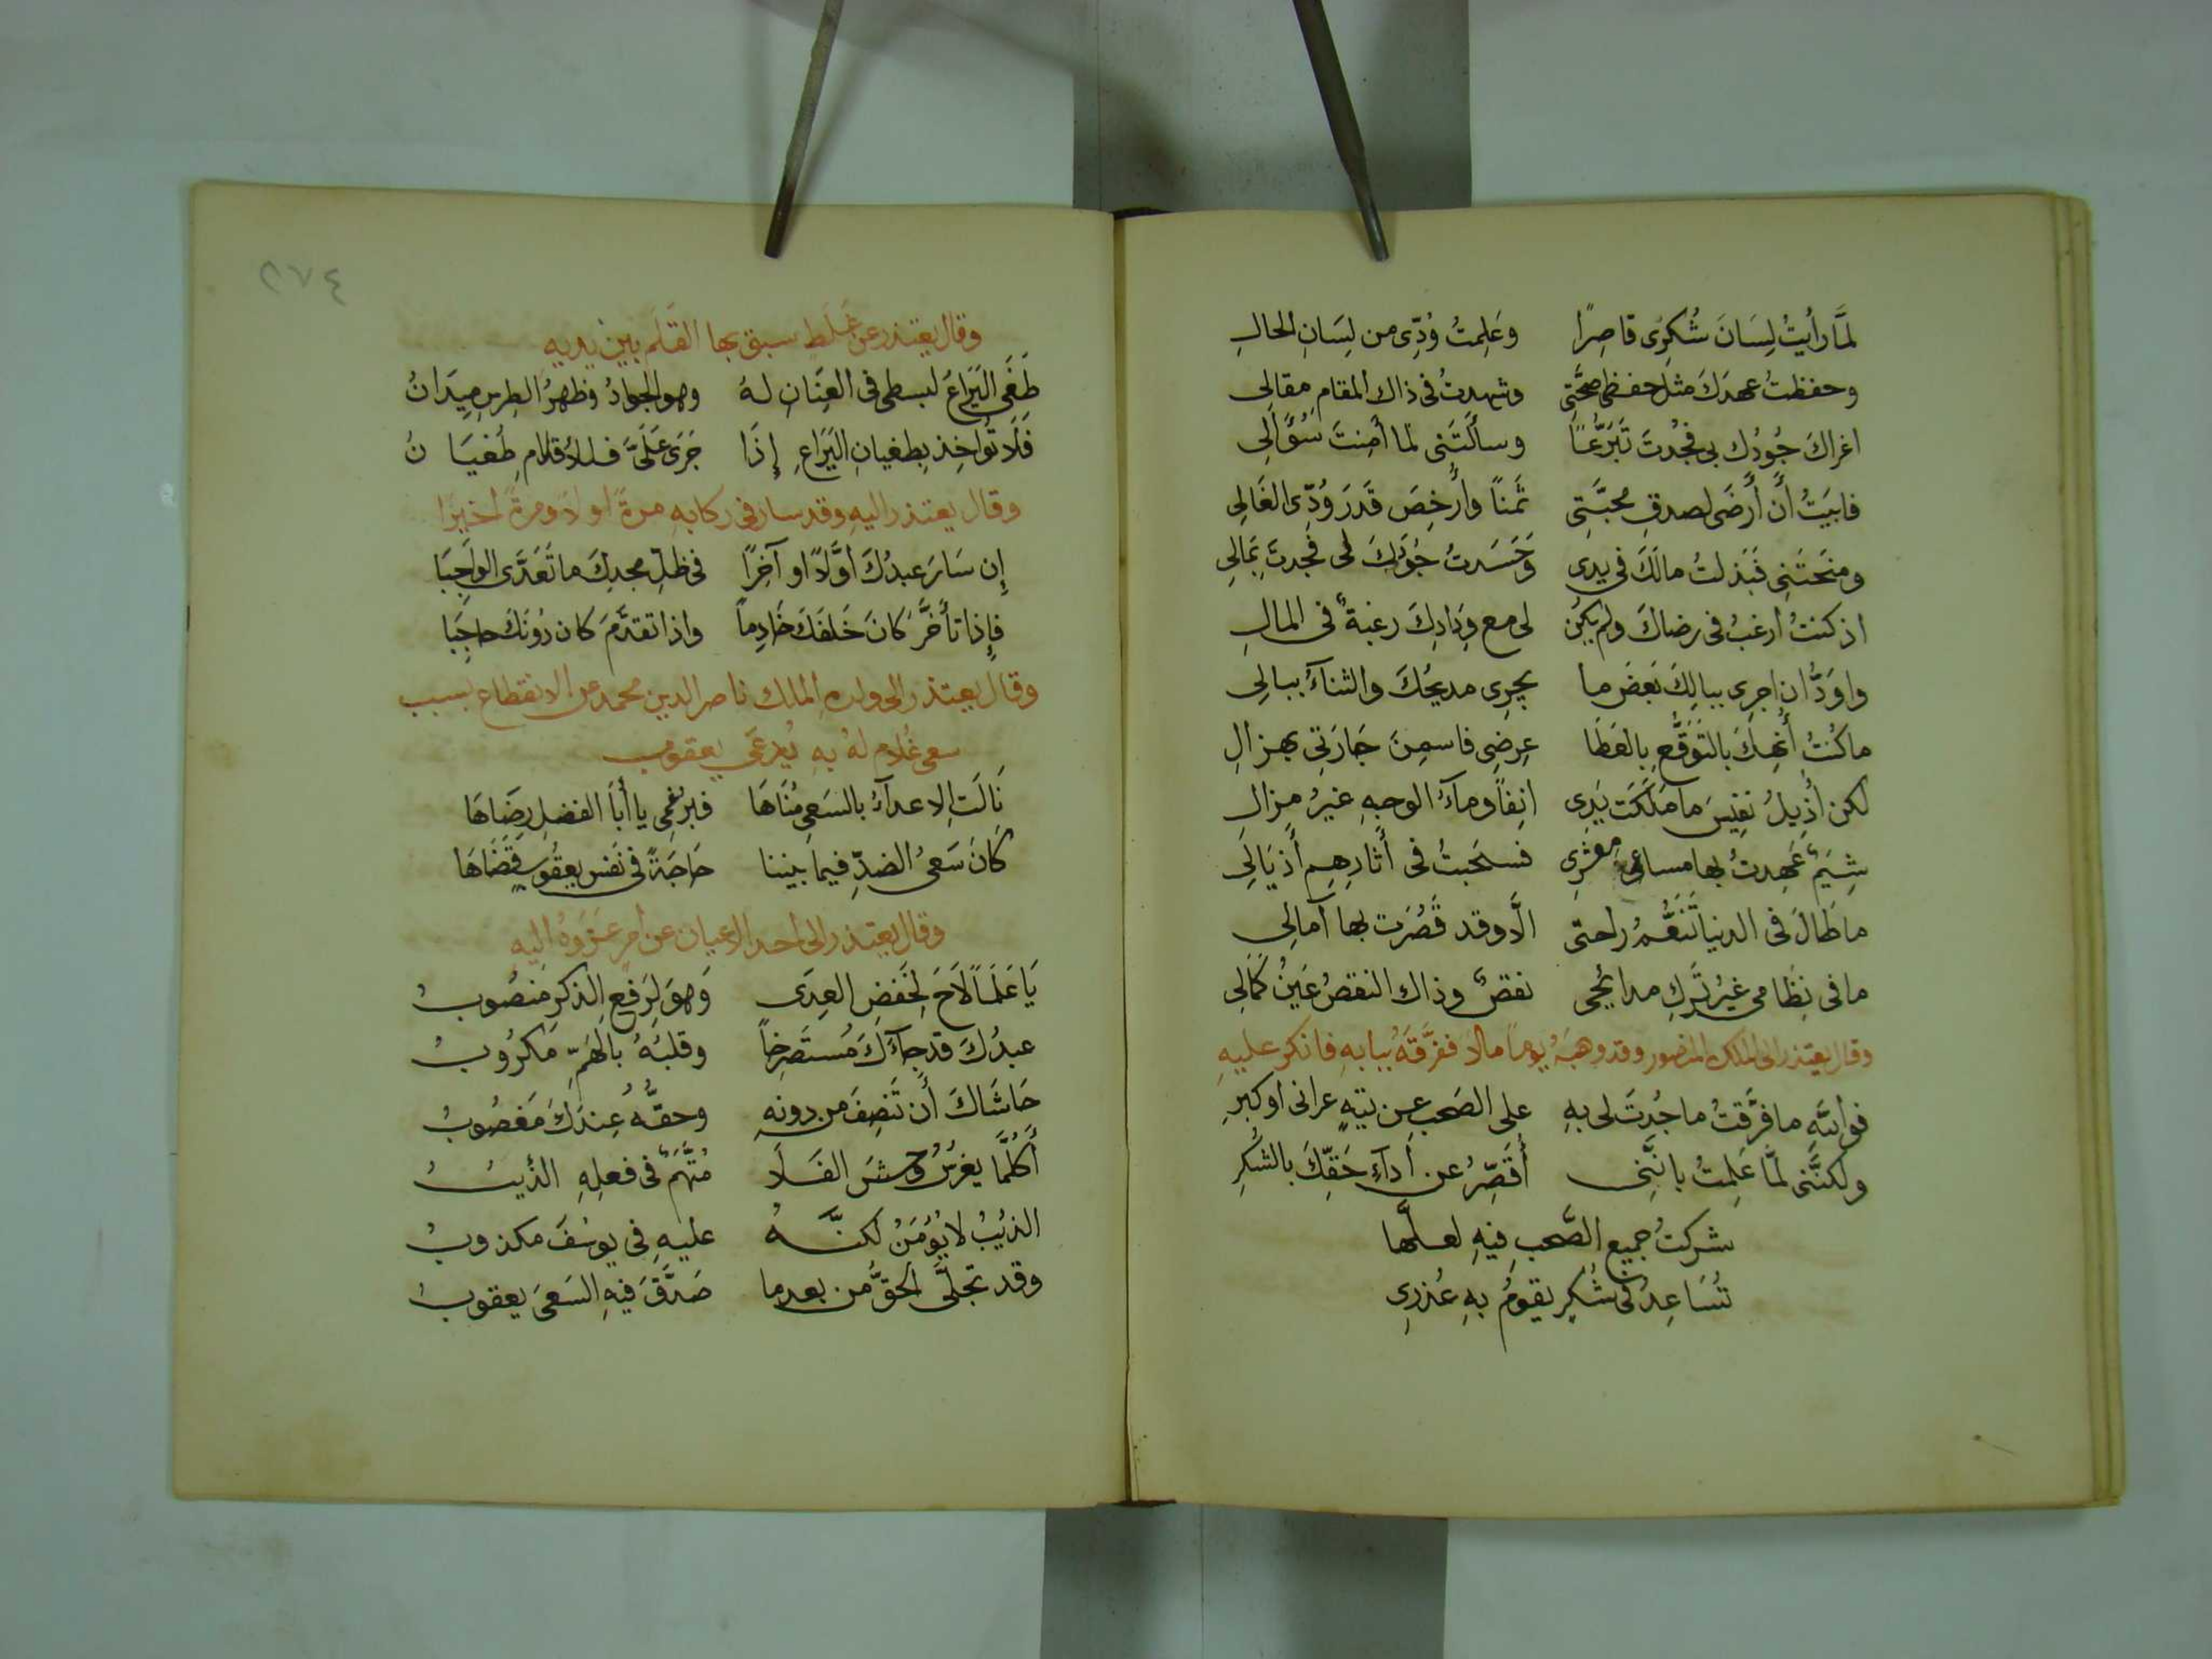 لمَّا رأيتُ لِسَانَ شُكرِى قاصِرًا وعَلِمتُ وُدِّى من لِسَانِ الحالِ
وحفظتُ عهدَكَ مثلَ حفظى صحَّتِى وشهدتُ فى ذاك المقامِ مِقالِى
اغراكَ جُودُك بى فجُدتَ تَبَرُّعًا وسألتَنى لمَّا أمِنتَ سُؤَالِى
فابَيتُ أَن أَرضَى لصدقِ محبَّتِى ثمنًا وأُرخِصَ قَدَرَ وُدِّى الغَالِى
ومنَحتَنِى فبَذلتُ مالَكَ فى يدِى وَحَسَدتُ جُودَكَ لى فجدتَ بِمَالِى
اذ كنتُ ارغبُ فى رضاكَ ولم يكُن لى مع وِدَادِكَ رغبةٌ فى المالِ
واوَدُّ ان اجرِى ببالِكَ بَعضَ ما يجرِى مديحُكَ والثنآءُ ببالِى
ماكُنتُ أُنهِكُ بالتوَقُّعِ بالعَطَا عِرضِى فاسمِنَ جَارَتِى بهزالِ
لكن أُذِيلُ نفِيسَ ما مَلَكَت يَدِى انِفًا ومآءُ الوجهِ غيرُ مزالِ
شِيَمٌ عَهِدتُ بها مساعى معشرِى فسحَبتُ فى أثارِهِم أَذيَالِى
ما طَالَ فى الدنيا تَنَعُّمُ راحتى الَّا وقد قَصُرَت بها آمالِى
ما فى نِظَامى غيرُ تَركِ مدائحى نقصٌ وذاك النقصُ عَينُ كَمَالِى
وقال يعتذر الى الملك المنصور وقد وهبَهُ يومًا مالًا ففرَّقَهُ ببابهِ فانكر عليهِ
فواللهِ ما فرَّقتُ ما جُدتَ لى بهِ على الصَحبِ عن تيهٍ عرانى او كبرِ
ولكنَّنى لمَّا عَلِمتُ بانَّنِى أُقَصِّرُ عن أدآءِ حَقِّكَ بالشكرِ
شركتُ جميع الصَّحبِ فيهِ لعلَّها
تُسَاعِدُ فى شُكرٍ يقومُ بهِ عُذرِى
٢٧٤
وقال يعتذر عن غلَطٍ سبق بها القلَم بين يديهِ
طَغَى اليَرَاعُ لبسطى فى العِنَانِ لهُ وهو الجوادُ وظهرُ الطِرسِ مِيدَانُ
فَلَا تُواخِذ بطغيانِ اليَرَاعِ إِذَا جَرَى عَلَىَّ فللأقلامِ طُغيَانُ
وقال يعتذر اليهِ وقد سار فى ركابهِ مرةً اولًا ومرةً اخيرًا
إِن سَارَ عبدُكَ أوَّلًا او آخِرًا فى ظلِّ مجدِكَ ما تَعَدَّى الواجِبَا
فإِذا تأَخَّرَ كَانَ خَلفَكَ خَادِماً واذا تقدَّمَ كان دُونَكَ حاجِبَا
وقال يعتذر الى ولدهِ الملك ناصر الدين محمد عن الانقطاع بسبب
سعى غُلامٍ لهُ بهِ يُدعَى يعقوب
نَالَتِ الاعدآءُ بالسَعىِ مُنَاهَا فبرغمِى يا أبَا الفضلِ رِضَاهَا
كَانَ سَعىُ الضدِّ فيما بيننا حَاجَةً فى نَفسِ يعقُوبٍ قَضَاهَا
وقال يعتذر الى احد الاعيان عن أمرٍ عَزَوهُ اليهِ
يَا عَلَمًا لَاحَ لِخَفضِ العِدَى وَهوَ لِرَفعِ الذكرِ مَنصُوبُ
عبدُكَ قد جآءَكَ مُستَصرِخاً وقلبُهُ بالهَمِّ مَكرُوبُ
حَاشَاكَ أَن تَنصِفَ من دونهِ وحقُّهُ عِندَكَ مَغصُوبُ
أكُلَّمَا يغرسُ وحشَ الفَلَا مُتَّهَمٌ فى فعلِهِ الذّيبُ
الذيبُ لا يُؤمَنُ لكنَّهُ عليهِ فى يوسُفَ مكذوبُ
وقد تجلَّى الحقُّ من بعدما صَدَّقَ فيهِ السَعىَ يعقوبُ